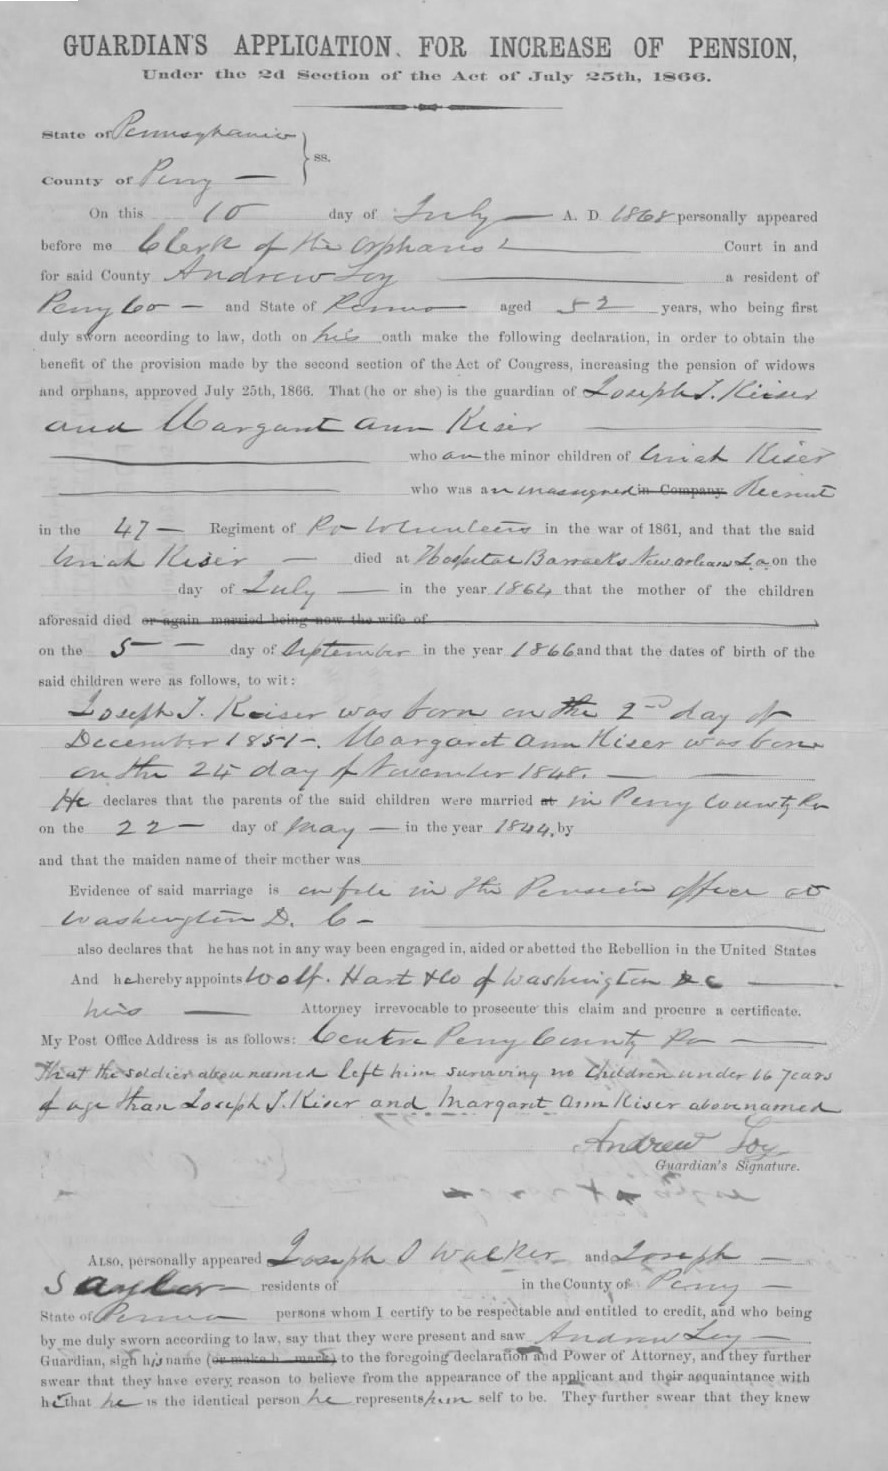 GUARDIAN'S APPLICATION FOR INCREASE OF PENSION,
Under the 2d Section of the Act of July 25th, 1866.
State of Pennsylvania
ss.
County of Perry
On this 10 day of July A. D. 1868 personally appeared
before me Clerk of the Orphans Court in and
for said County Andrew Loy a resident of
Perry Co and State of Penna aged 52 years, who being first
duly sworn according to law, doth on his oath make the following declaration, in order to obtain the
benefit of the provision made by the second section of the Act of Congress, increasing the pension of widows
and orphans, approved July 25th, 1866. That (he or she) is the guardian of Joseph T. Kiser
and Margaret Ann Kiser
who are the minor children of Uriah Kiser
who was an unassigned in Company Recruit
in the 47 Regiment of Pa Volunteers in the war of 1861, and that the said
Uriah Kiser died at Hospital Barracks New Orleans La on the
day of July in the year 1864 that the mother of the children
aforesaid died or again married being now the wife of
on the 5 day of September in the year 1866 and that the dates of birth of the
said children were as follows, to wit:
Joseph T. Keiser was born on the 2nd day of
December 1851. Margaret Ann Kiser was born
on the 24 day of November 1848.
He declares that the parents of the said children were married at in Perry County Pa
on the 22 day of May in the year 1844, by
and that the maiden name of their mother was
Evidence of said marriage is on file in the Pension office at
Washington D. C
also declares that he has not in any way been engaged in, aided or abetted the Rebellion in the United States
And he hereby appoints Wolf. Hart & Co of Washington D C
his Attorney irrevocable to prosecute this claim and procure a certificate.
My Post Office Address is as follows: Centre Perry County Pa
That the soldier above named left him surviving no children under 16 years
of age than Joseph T. Kiser and Margaret Ann Kiser abovenamed
Andrew Loy
Guardian's Signature.
Also, personally appeared Joseph Walker and Joseph
Saylor residents of in the County of Perry
State of Penna persons whom I certify to be respectable and entitled to credit, and who being
by me duly sworn according to law, say that they were present and saw Andrew Loy
Guardian, sign his name (or make h mark) to the foregoing declaration and Power of Attorney, and they further
swear that they have every reason to believe from the appearance of the applicant and their acquaintance with
h that he is the identical person he represents him self to be. They further swear that they knew